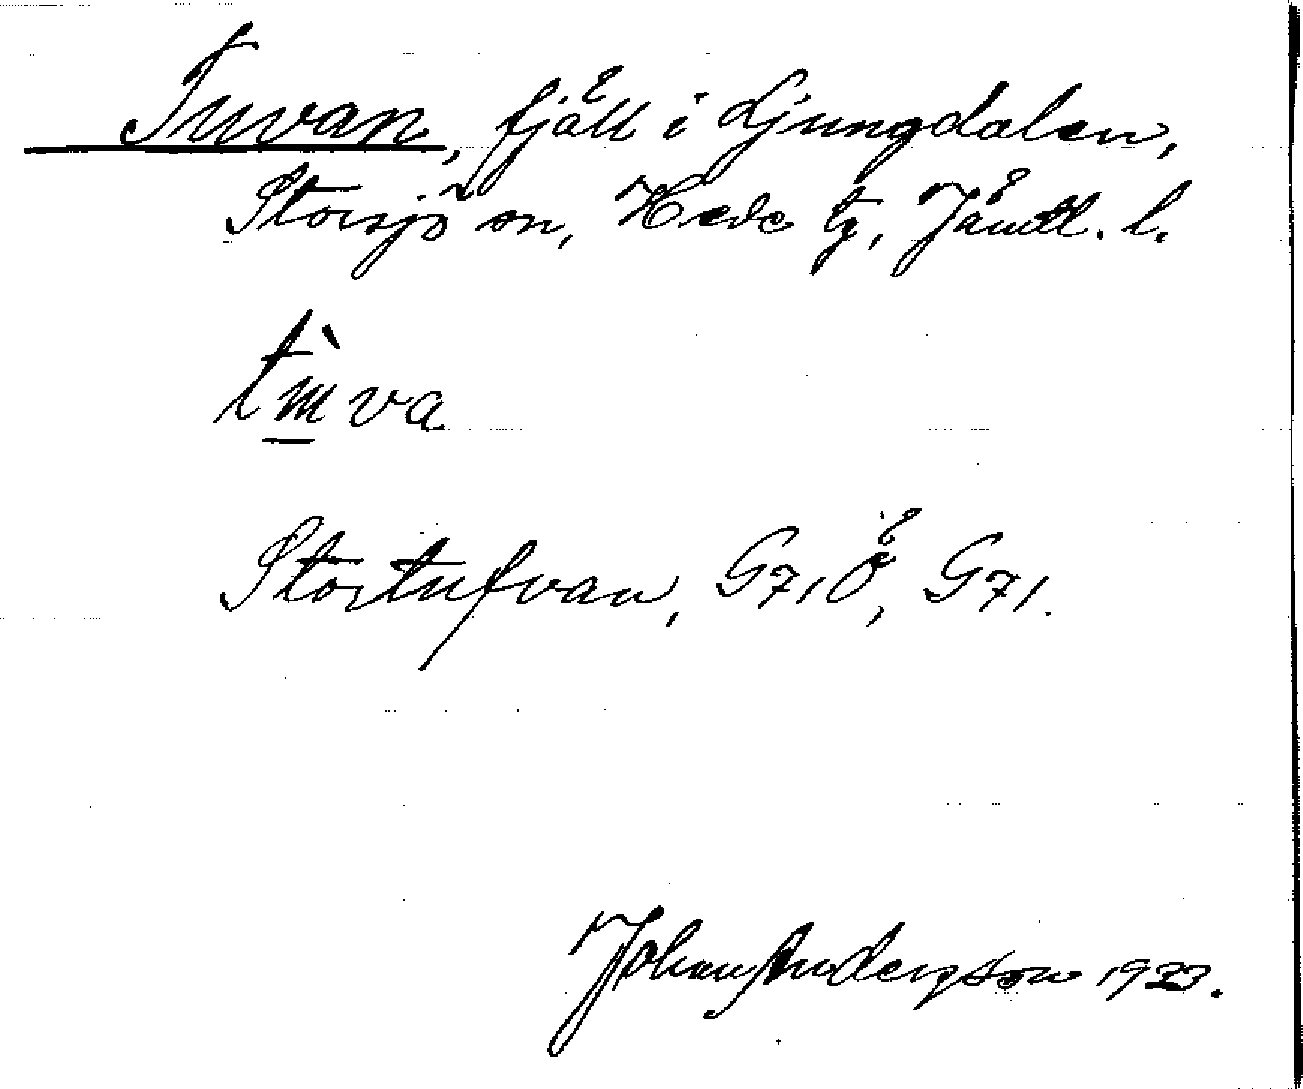 Tuvan, fjäll i Ljungdalen,
Storsjö sn, Hede tg, Jämtl. l.
Stortufvan, G71Ö, G71.
Johan Andersson 1933.